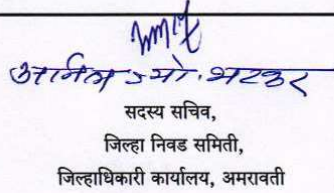 अनिल ज्यो. भटकर
सदस्य सचिव,
जिल्हा निवड समिती,
जिल्हाधिकारी कार्यालय, अमरावती